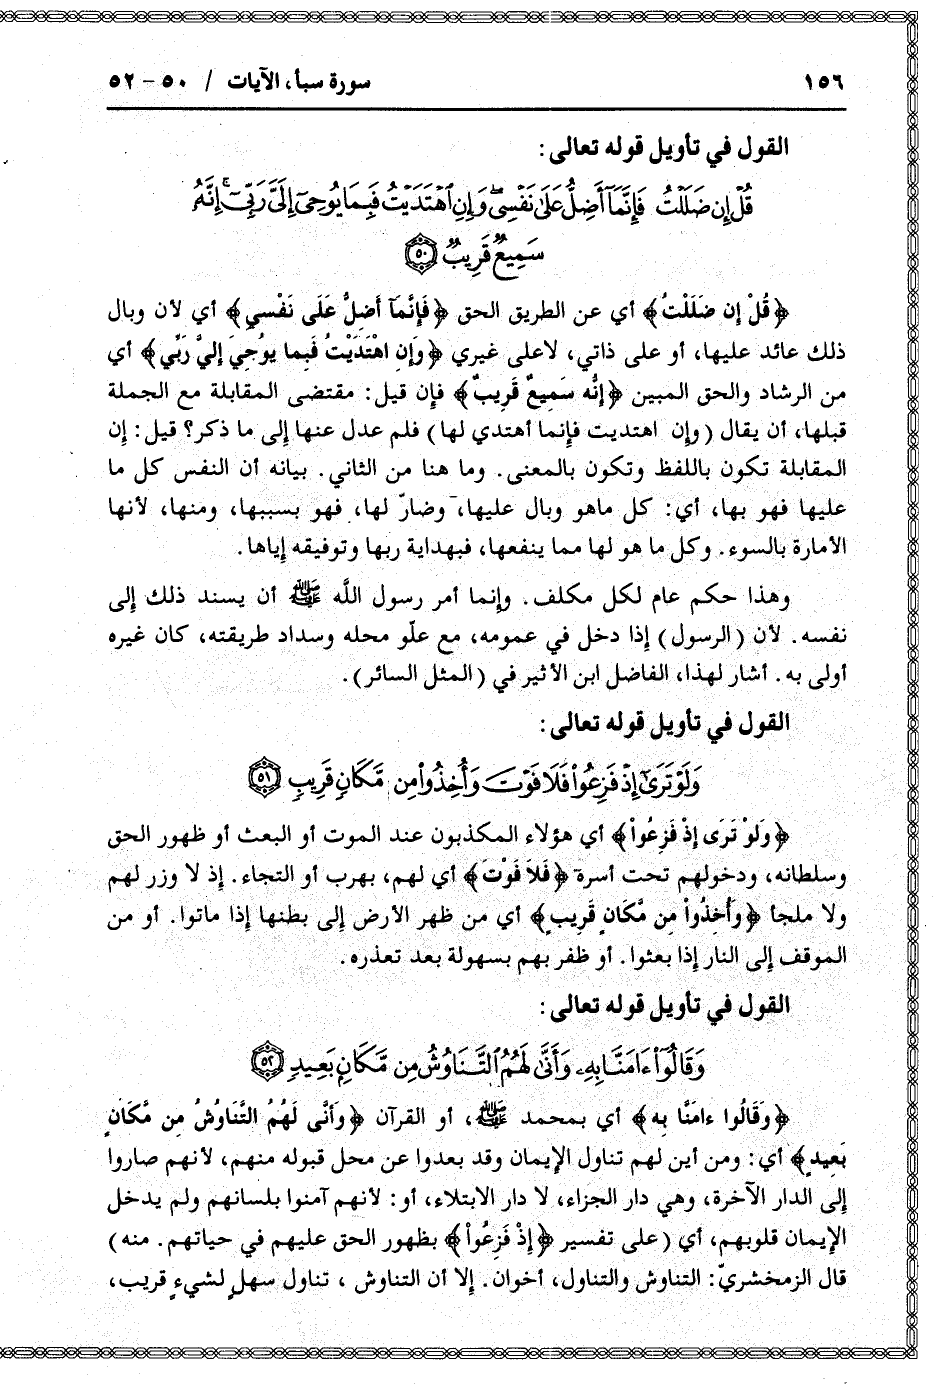 ١٥٦ سورة سبأ، الآيات / ٥٠ - ٥٢
القول في تأويل قوله تعالى:
قُلْ إِن ضَلَلْتُ فَإِنَّمَآ أَضِلُّ عَلَىٰ نَفْسِى وَإِنِ ٱهْتَدَيْتُ فَبِمَا يُوحِىٓ إِلَىَّ رَبِّىٓ إِنَّهُۥ
سَمِيعٌ قَرِيبٌ ﴿٥٠﴾
﴿قُلْ إِن ضَلَلْتُ﴾ أي عن الطريق الحق ﴿فَإِنَّمَآ أَضِلُّ عَلَى نَفْسِي﴾ أي لأن وبال
ذلك عائد عليها، أو على ذاتي، لاعلى غيري ﴿وَإِنِ اهْتَدَيْتُ فَبِما يوُحِيَ إِليَّ رَبِّي﴾ أي
من الرشاد والحق المبين ﴿إِنَّه سَمِيعٌ قَرِيبٌ﴾ فإن قيل: مقتضى المقابلة مع الجملة
قبلها، أن يقال (وإن اهتديت فإنما أهتدي لها) فلم عدل عنها إلى ما ذكر؟ قيل: إن
المقابلة تكون باللفظ وتكون بالمعنى. وما هنا من الثاني. بيانه أن النفس كل ما
عليها فهو بها، أي: كل ماهو وبال عليها، وضارّ لها، فهو بسببها، ومنها، لأنها
الأمارة بالسوء. وكل ما هو لها مما ينفعها، فبهداية ربها وتوفيقه إياها.
وهذا حكم عام لكل مكلف. وإنما أمر رسول اللَّه ﷺ أن يسند ذلك إلى
نفسه. لأن (الرسول) إذا دخل في عمومه، مع علّو محله وسداد طريقته، كان غيره
أولى به. أشار لهذا، الفاضل ابن الأثير في (المثل السائر).
القول في تأويل قوله تعالى:
وَلَوْ تَرَىٰٓ إِذْ فَزِعُواْ فَلَا فَوْتَ وَأُخِذُواْ مِن مَّكَانٍ قَرِيبٍ ﴿٥١﴾
﴿وَلَوْ تَرَى إِذْ فَزِعُواْ﴾ أي هؤلاء المكذبون عند الموت أو البعث أو ظهور الحق
وسلطانه، ودخولهم تحت أسرة ﴿فَلاَ فَوْتَ﴾ أي لهم، بهرب أو التجاء. إذ لا وزر لهم
ولا ملجأ ﴿وَأُخِذُواْ مِن مَّكَانٍ قَرِيبٍ﴾ أي من ظهر الأرض إلى بطنها إذا ماتوا. أو من
الموقف إلى النار إذا بعثوا. أو ظفر بهم بسهولة بعد تعذره.
القول في تأويل قوله تعالى:
وَقَالُوٓاْ ءَامَنَّا بِهِۦ وَأَنَّىٰ لَهُمُ ٱلتَّنَاوُشُ مِن مَّكَانٍۭ بَعِيدٍ ﴿٥٢﴾
﴿وَقَالُوا ءامَنَّا بِه﴾ أي بمحمد ﷺ، أو القرآن ﴿وَأَنَّى لَهُمُ التَّنَاوُشُ مِن مَّكَانٍ
بَعِيدٍ﴾ أي: ومن أين لهم تناول الإيمان وقد بعدوا عن محل قبوله منهم، لأنهم صاروا
إلى الدار الآخرة، وهي دار الجزاء، لا دار الابتلاء، أو: لأنهم آمنوا بلسانهم ولم يدخل
الإيمان قلوبهم، أي (على تفسير ﴿إِذْ فَزِعُواْ﴾ بظهور الحق عليهم في حياتهم. منه)
قال الزمخشريّ: التناوش والتناول، أخوان. إلا أن التناوش ، تناول سهلٍ لشيءٍ قريب،